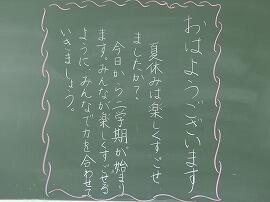 おはようございます
夏休みは楽しくすごせ
ましたか?
今日から二学期が始まり
ます。みんなが楽しくすごせる
ように、みんなで力を合わせて
いきましょう。